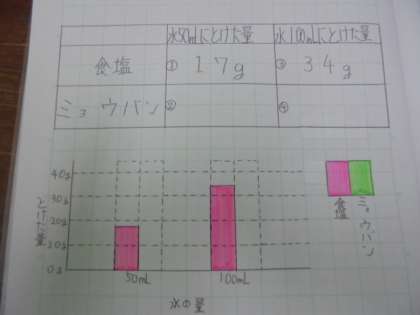 水50mLにとけた量 水100mLにとけた量
食塩 ① 17g ③ 34g
ミョウバン ② ④
40g
30g
20g
10g
0g
とけた量
50mL 100mL
水の量
食塩
ミョウバン